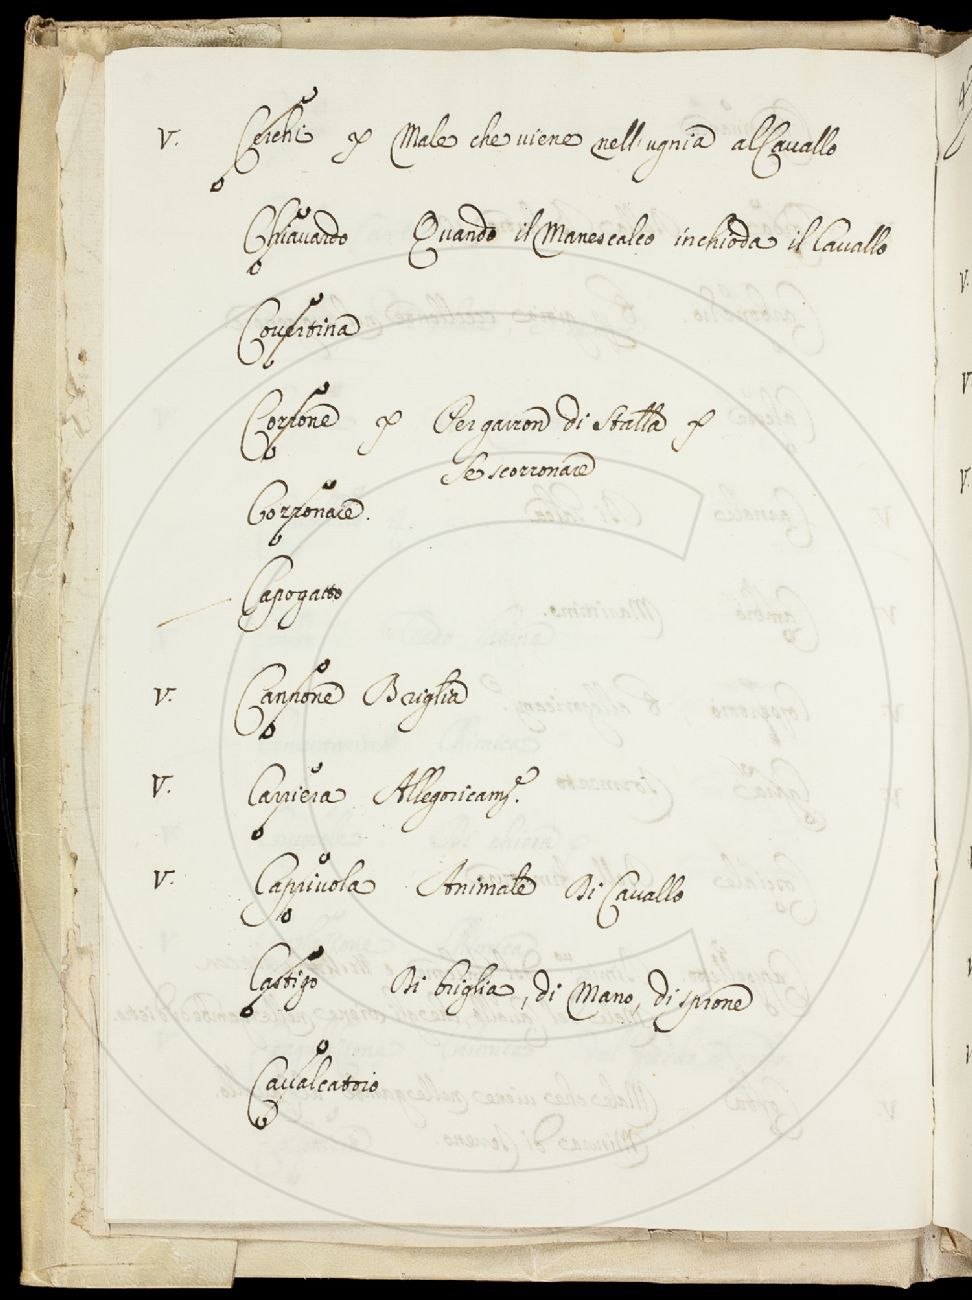 V. Cerchi p Male che viene nell'ugnia al Cavallo
Chiavardo Quando il Manescalco inchioda il Cavallo
Covertina
Corsone p Per garron di stalla p
Se scorronare
Corsonare.
Capogatto
V. Canzone Briglia
V. Carriera Allegoricam.e
V. Capriuola Animale Di Cavallo
Castigo Di briglia, di Mano, di sprone
Cavalcatoio